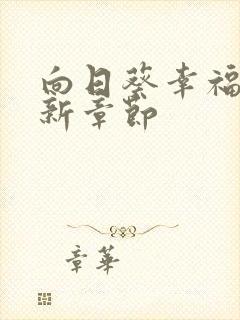 向日葵幸福
新章节
章华